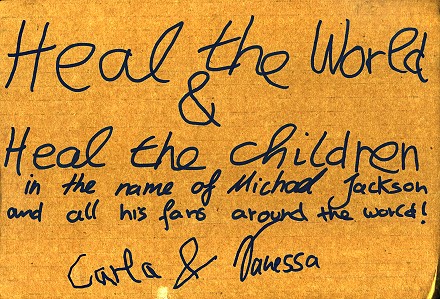 Heal the World
&
Heal the children
in the name of Michael Jackson
and all his fans around the world!
Carla & Vanessa